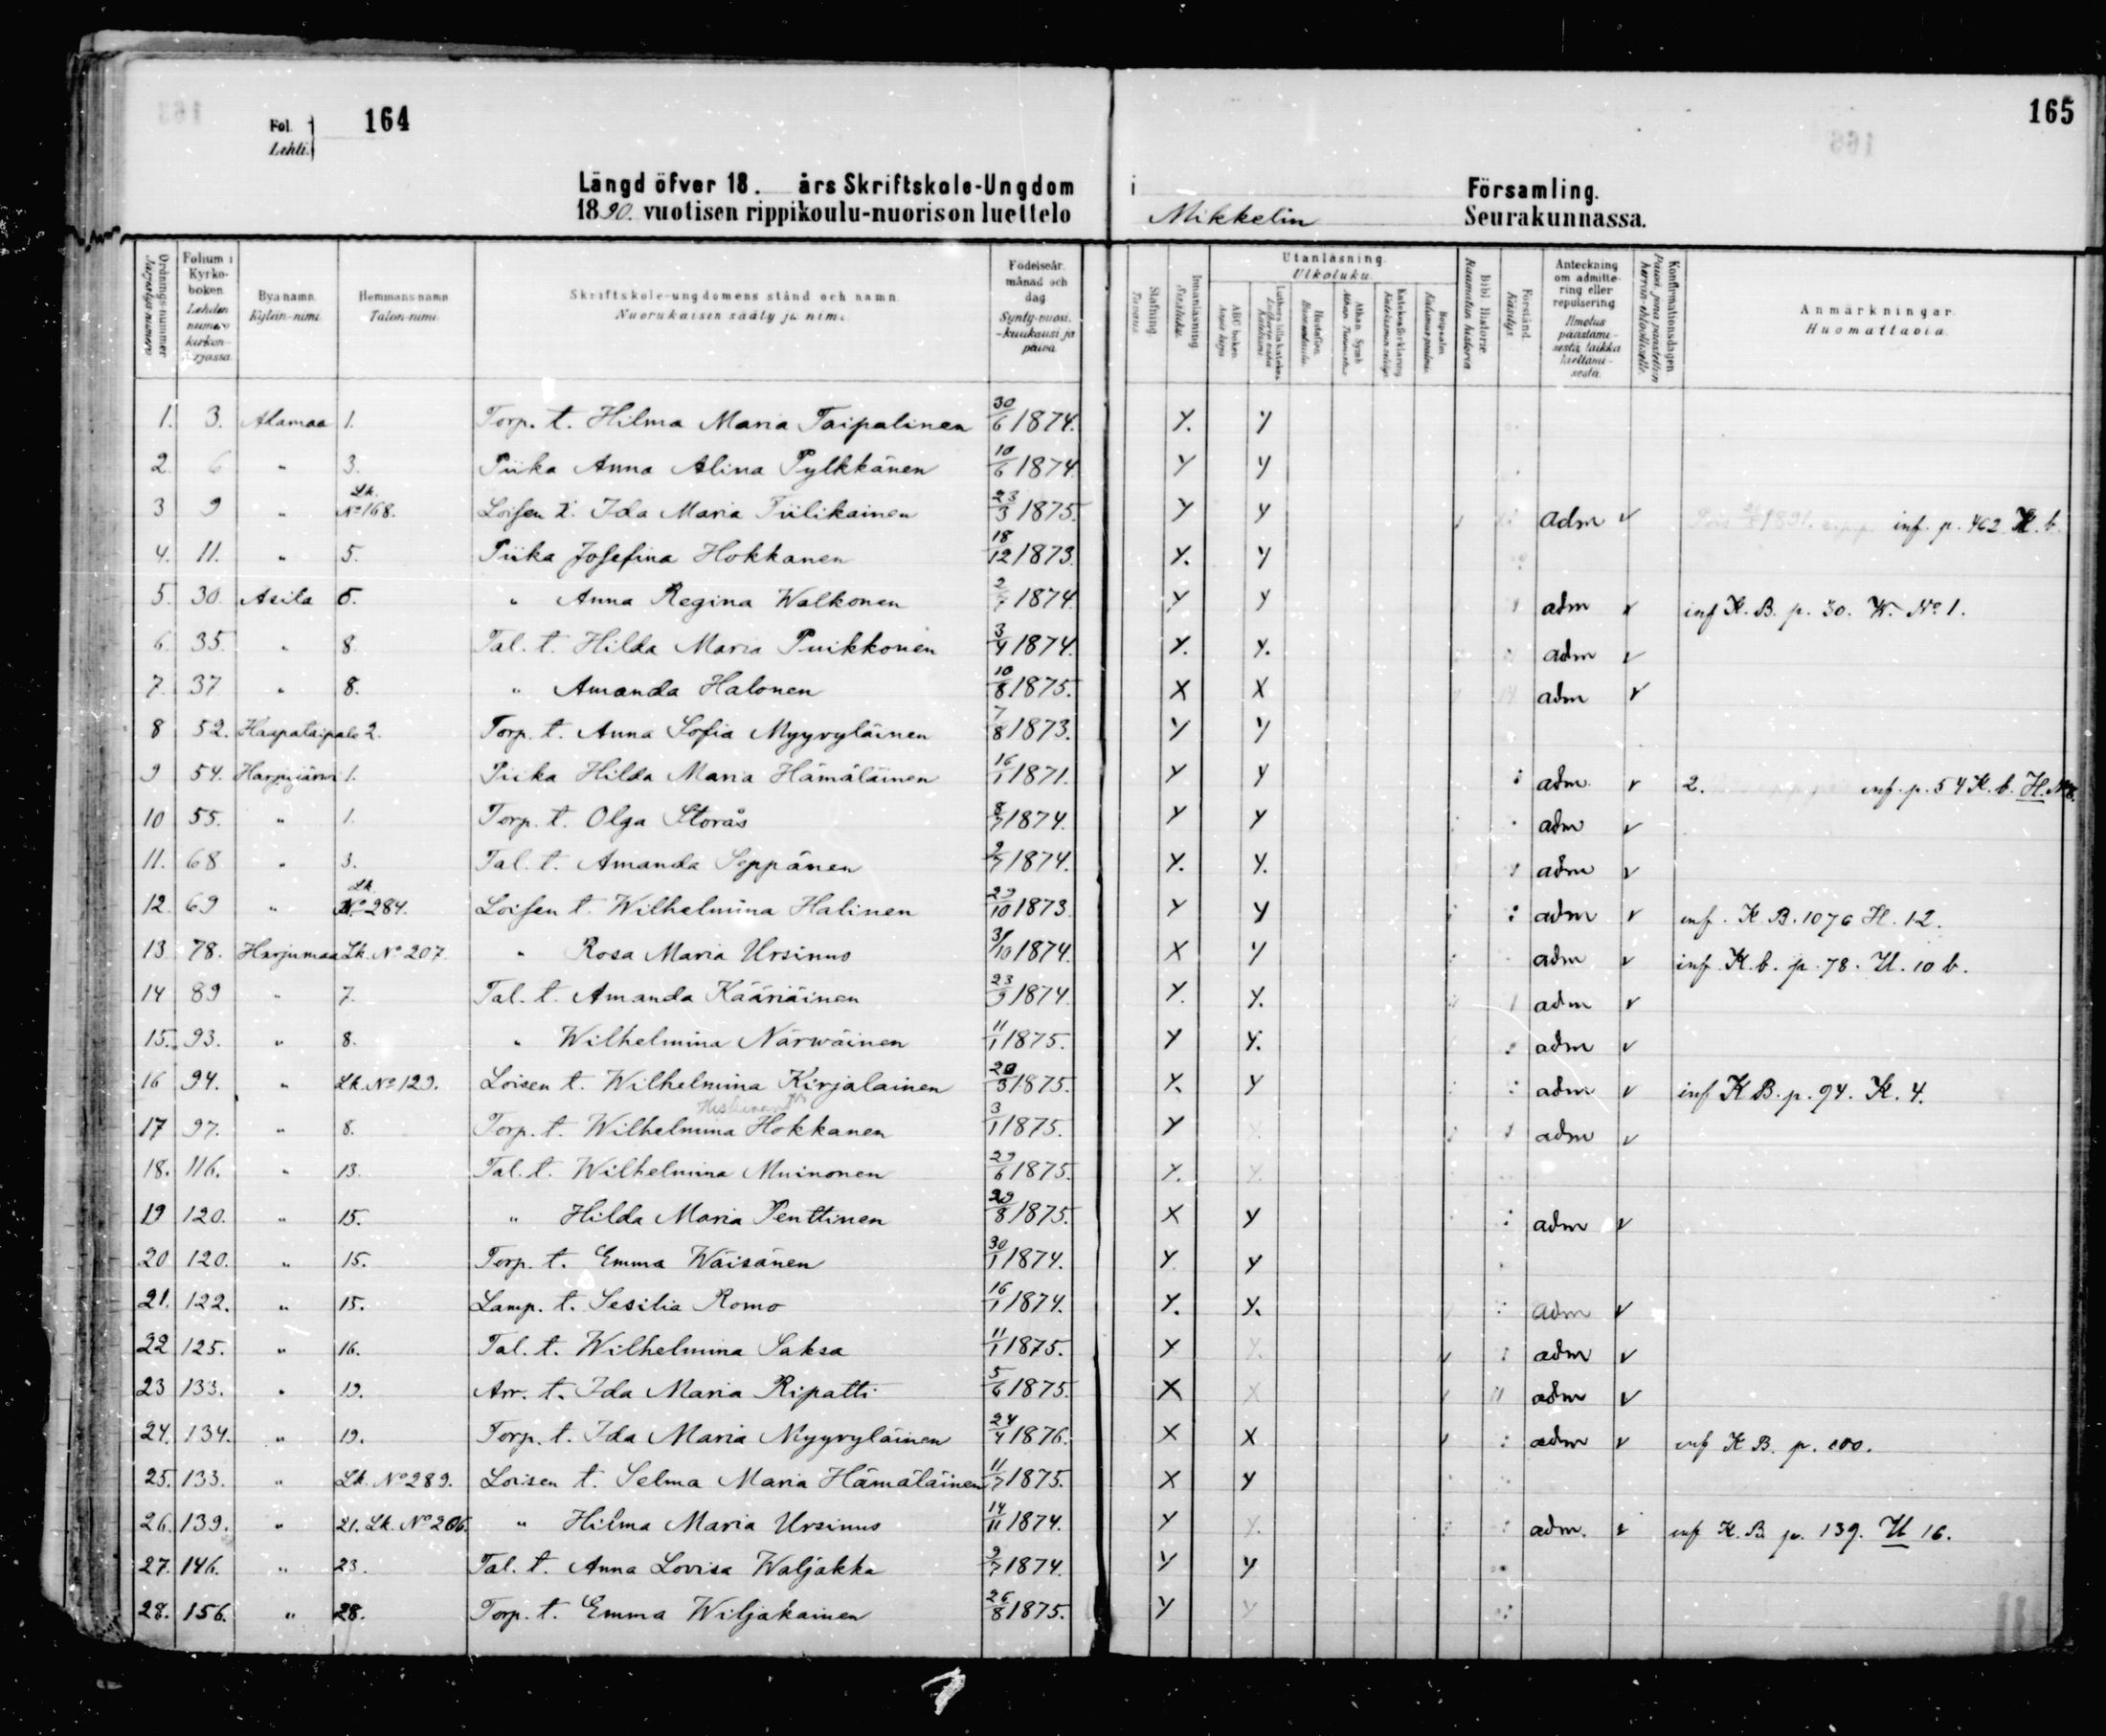 Fol.
Lehti.
164
165
Längd öfver 18. års Skriftskole-Ungdom i Församling.
1890. vuotisen rippikoulu-nuorison luettelo Mikkelin Seurakunnassa.
Ordningsnummer Järjestys numero
Folium i Kyrkoboken. Lehden numero kirkonkirjassa.
Bya namn. Kylän-nimi.
Hemmans namn. Talon-nimi.
Skriftskole-ungdomens stånd och namn. Nuorukaisen sääty ja nimi.
Födelseår, månad och dag. Synty-vuosi, -kuukausi ja päivä.
Stafning. Tavaus.
Innanläsning. Sisäluku.
Utanläsning. Ulkoluku.
ABC boken.
Bibl. Historie.
Förstånd. Käsitys.
Anteckning om admittering eller repulsering.
Konfirmationsdagen.
Anmärkningar. Huomattavia.
1. 3. Alamaa 1. Torp. t. Hilma Maria Taipalinen 30/6 1874. Y. Y
2. 6 " 3. Piika Anna Alina Pylkkänen 10/6 1874 Y Y
3 9 " Lk. No 168. Loisen t. Ida Maria Tiilikainen 23/3 1875. Y Y adm v inf. p. 462 K. b.
4. 11. " 5. Piika Josefina Hokkanen 18/12 1873. Y. Y
5. 30. Asila 5. " Anna Regina Walkonen 1874. Y Y adm v inf K. B. p. 30. W. No 1.
6. 35. " 8. Tal. t. Hilda Maria Puikkonen 3/4 1874. Y. Y. adm v
7. 37 " 8. " Amanda Halonen 10/8 1875. X X adm v
8 52. Haapataipale 2. Torp. t. Anna Sofia Myyryläinen 7/8 1873. Y Y
9 54. Harjujärwi 1. Piika Hilda Maria Hämäläinen 16/1 1871. Y Y adm. v 2. inf. p. 54 K. b. H. No 8.
10 55. " 1. Torp. t. Olga Storås 8/7 1874. Y Y adm v
11. 68 " 3. Tal. t. Amanda Seppänen 2/7 1874. Y. Y. adm v
12. 69 " Lk. No 284. Loisen t. Wilhelmina Halinen 29/10 1873. Y Y adm v inf. K. B. 1076 H. 12.
13 78. Harjumaa Lk. No 207. " Rosa Maria Ursinus 31/10 1874. X Y adm v inf. K. b. p. 78. U. 10 b.
14 89 " 7. Tal. t. Amanda Kääriäinen 23/9 1874. Y. Y. adm v
15. 93. " 8. " Wilhelmina Närwäinen 11/1 1875. Y Y. adm v
16 94. " Lk. No 129. Loisen t. Wilhelmina Kirjalainen 20/3 1875. Y. Y adm v inf K B. p. 94. K. 4.
17 97. " 8. Torp. t. Wilhelmina Hokkanen 3/1 1875. Y Y. adm v
18. 116. " 13. Tal. t. Wilhelmina Muinonen 29/6 1875. Y. Y.
19 120. " 15. " Hilda Maria Penttinen 29/8 1875. X Y adm v
20 120. " 15. Torp. t. Emma Wäisänen 30/1 1874. Y Y
21. 122. " 15. Lamp. t. Sesilia Romo 16/1 1874. Y. Y. adm v
22 125. " 16. Tal. t. Wilhelmina Saksa 11/1 1875. Y Y. adm v
23 133. " 19. Arr. t. Ida Maria Ripatti 5/6 1875. X X adm v
24. 134. " 19. Torp. t. Ida Maria Myyryläinen 24/4 1876. X X adm v inf K B. p. 100.
25. 133. " Lk. No 289. Loisen t. Selma Maria Hämäläinen 11/7 1875. X Y
26. 139. " 21. Lk. No 206. " Hilma Maria Ursinus 14/11 1874. Y Y. adm. v inf K. B. p. 139. U 16.
27. 146. " 23. Tal. t. Anna Lovisa Waljakka 9/7 1874. Y Y
28. 156. " 28. Torp. t. Emma Wiljakainen 26/8 1875. Y Y